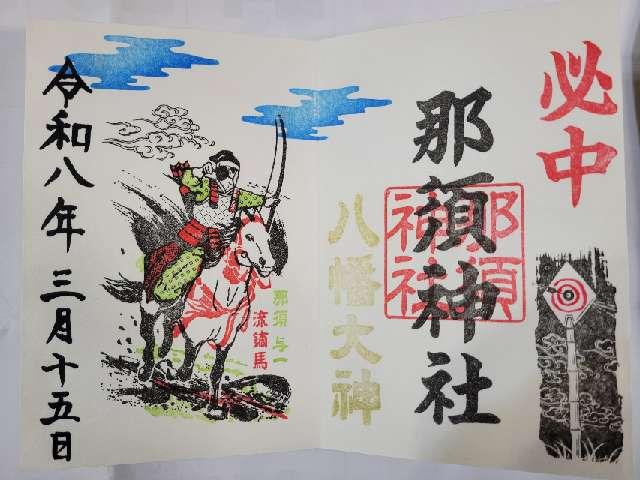 必中
那須神社
那須
神社
八幡大神
那須与一
流鏑馬
令和八年三月十五日